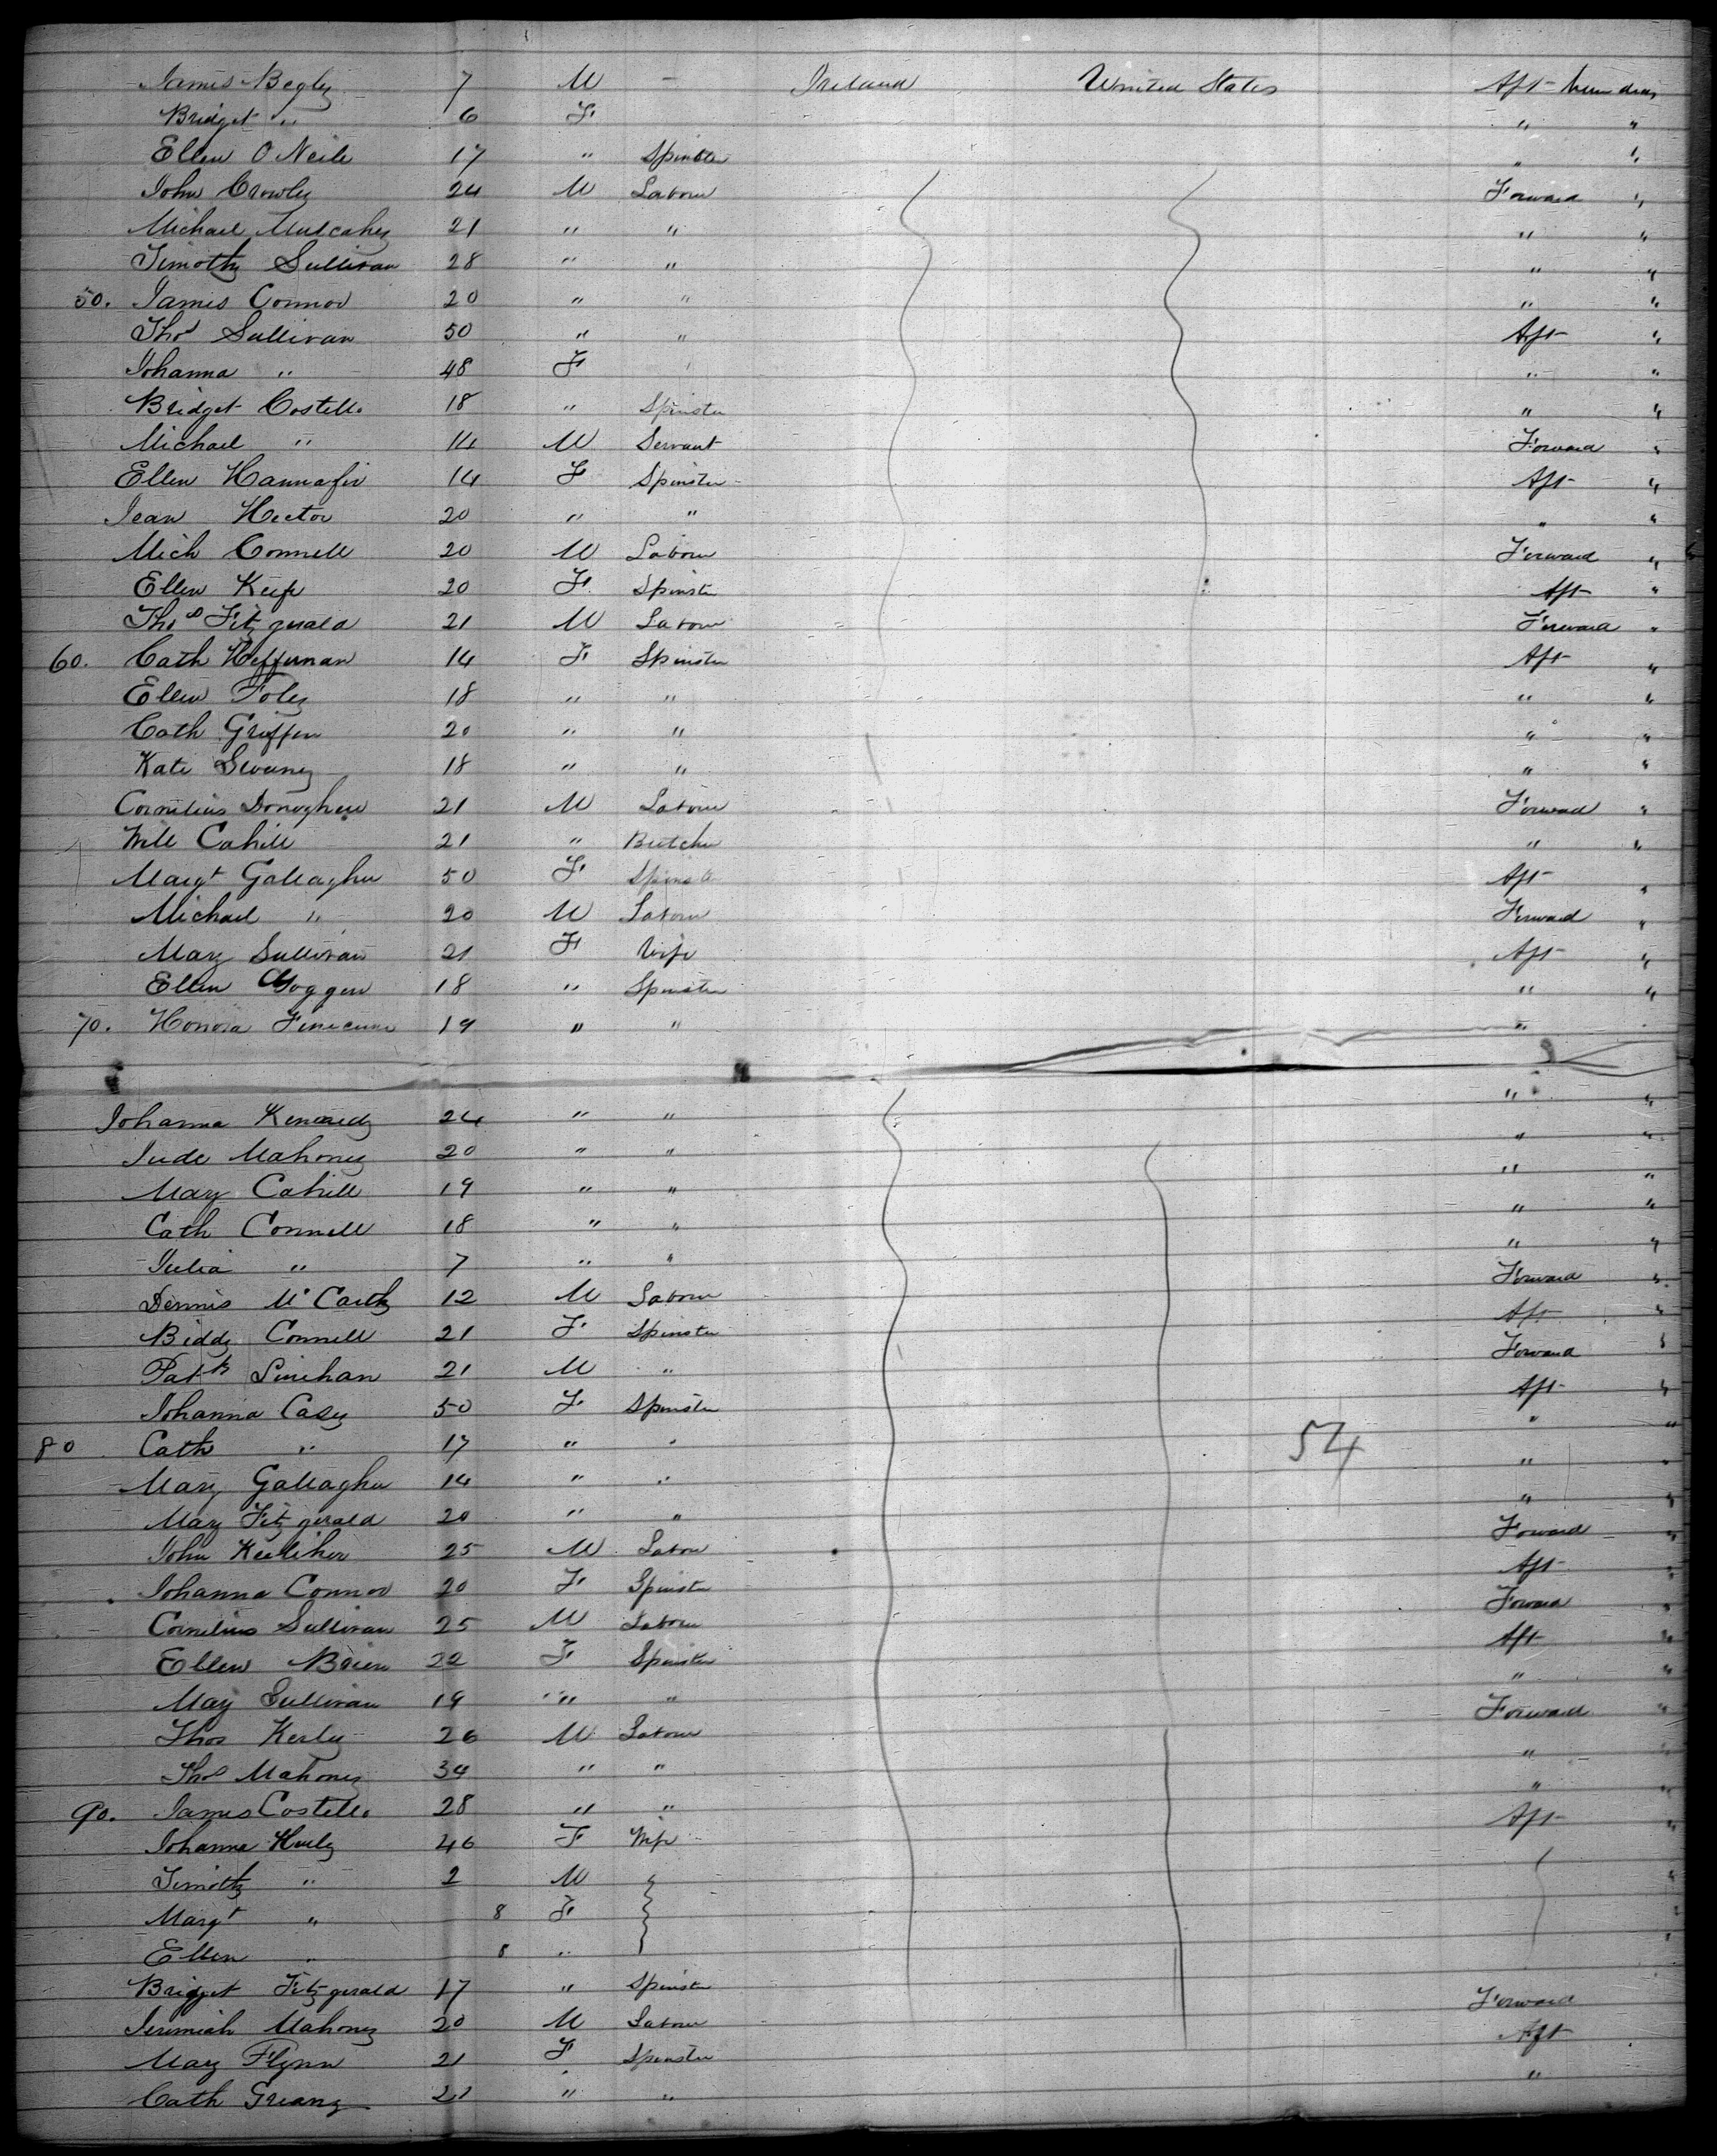 James Begley 7 M - Ireland United States Aft
Bridget " 6 F " "
Ellen O Neile 17 " Spinster " "
John Crowley 24 M Labour Forward "
Michael Mulcahey 21 " " " "
Timothy Sullivan 28 " " " "
50. James Connor 20 " " " "
Thos Sullivan 50 " " Aft "
Johanna " 48 F " " "
Bridget Costello 18 " Spinster " "
Michael " 14 M Servant Forward "
Ellen Hannafin 14 F Spinster Aft "
Jean Hector 20 " " " "
Mich Connell 20 M Labour Forward "
Ellen Keefe 20 F Spinster Aft "
Thos Fitzgerald 21 M Labour Forward "
60. Cath Heffernan 14 F Spinster Aft "
Ellen Foley 18 " " " "
Cath Griffen 20 " " " "
Kate Sweeney 18 " " " "
Cornelius Donoghue 21 M Labour Forward "
Will Cahill 21 " Butcher " "
Margt Gallagher 50 F Spinster Aft "
Michael " 20 M Labour Forward "
Mary Sullivan 21 F Wife Aft "
Ellen Goggen 18 " Spinster " "
70. Honora Finucane 19 " " "
Johanna Kennedy 24 " " " "
Jude Mahoney 20 " " " "
Mary Cahill 19 " " " "
Cath Connell 18 " " " "
Julia " 7 " " " "
Dennis McCarthy 12 M Labour Forward "
Biddy Connell 21 F Spinster Aft "
Patk Linehan 21 M " Forward "
Johanna Casey 50 F Spinster Aft "
80 Cath " 17 " " " "
Mary Gallagher 14 " " 54 " "
Mary Fitzgerald 20 " " " "
John Kelliher 25 M Labour Forward "
Johanna Connor 20 F Spinster Aft "
Cornelius Sullivan 25 M Labour Forward "
Ellen Brien 22 F Spinster Aft "
Mary Sullivan 19 " " " "
Thos Kerley 26 M Labour Forward "
Thos Mahoney 34 " " " "
90. James Costello 28 " " " "
Johanna Healy 46 F Wife Aft "
Timothy " 2 M "
Margt " 8 F "
Ellen " 8 " "
Bridget Fitzgerald 17 " Spinster
Jeremiah Mahoney 20 M Labour Forward
Mary Flynn 21 F Spinster Aft
Cath Greany 21 " " "